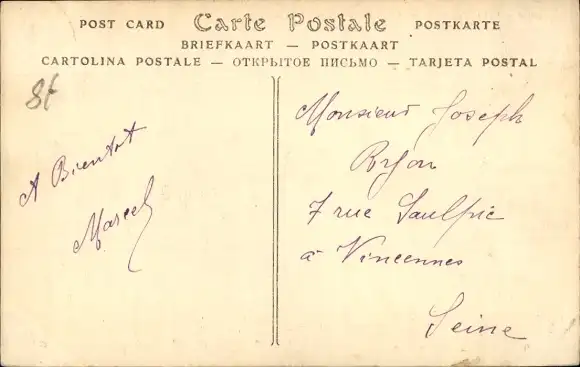 POST CARD Carte Postale POSTKARTE
BRIEFKAART — POSTKAART
CARTOLINA POSTALE — ОТКРЫТОЕ ПИСЬМО — TARJETA POSTAL
A Bientot
Marcel
Monsieur Joseph
7 rue Saulpic
à Vincennes
Seine